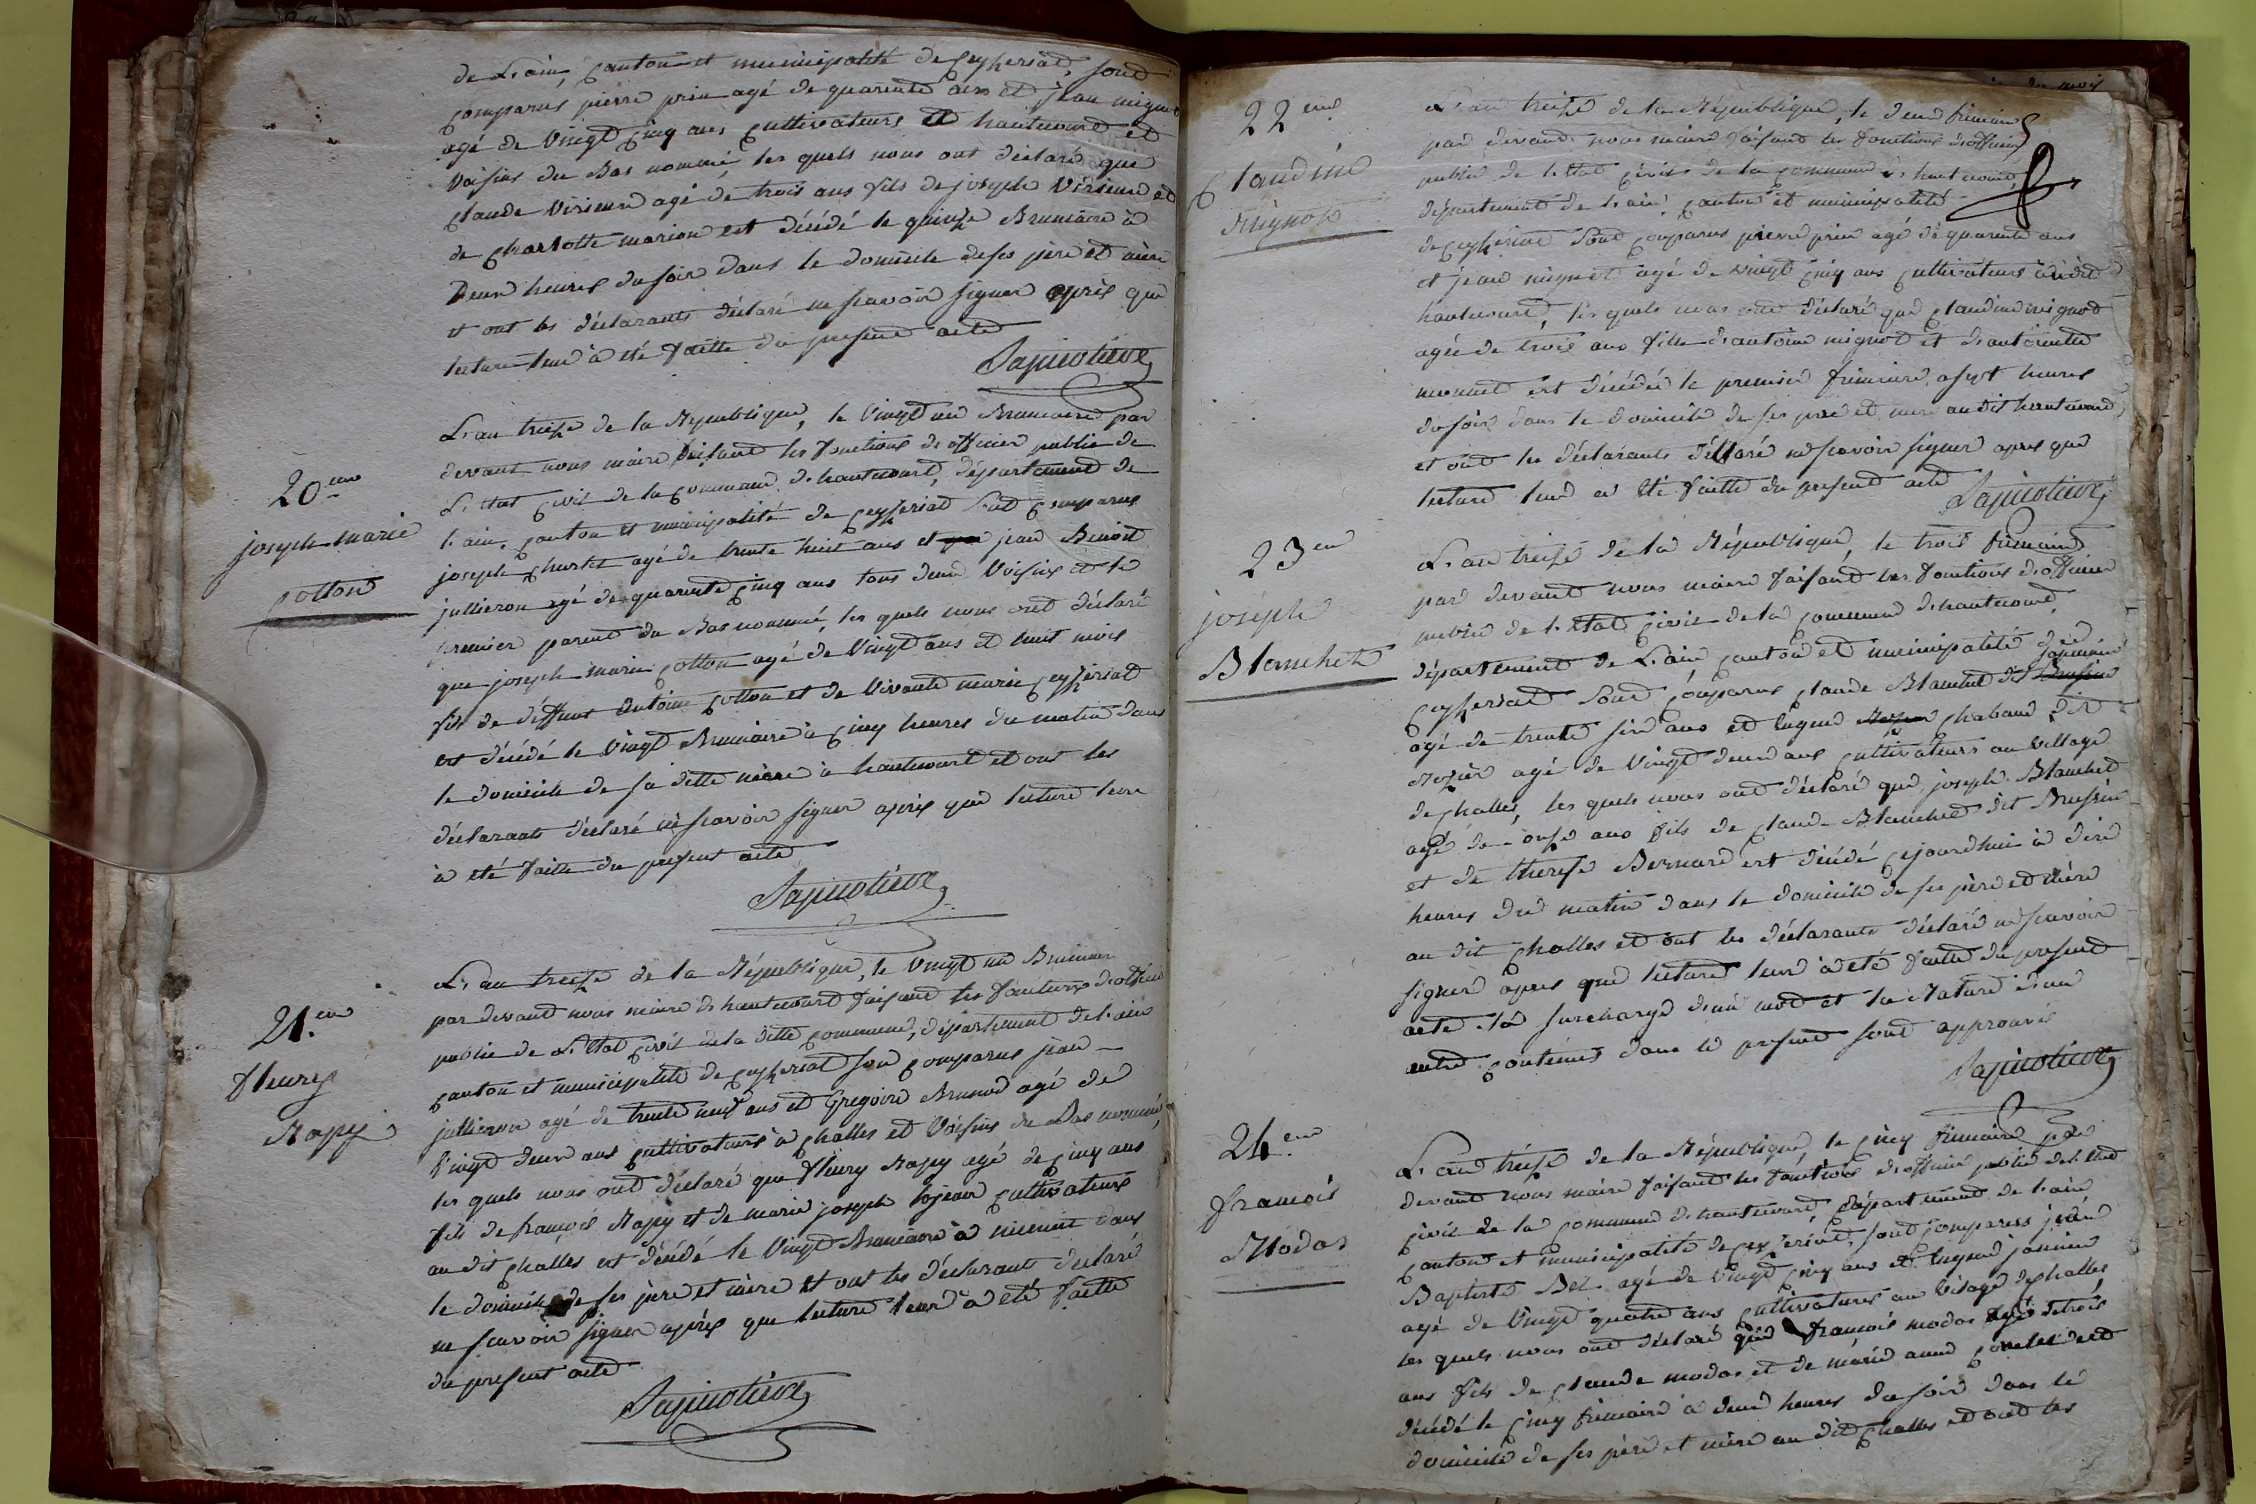 de L'ain, Canton et municipalité de Ceyzeriat, sont
comparus pierre prin agé de quarente ans et jean mignot
agé de Vingt Cinq ans Cultivateurs et hautecourt et
Voisins du Bas nommé, les quels nous ont déclaré que
Claude Virieux agé de trois ans fils de joseph Virieux et
de Charlotte marion est décédé le quinze Brumaire à
Deux heures du soir dans le domicile de ses père et mère
et ont les déclarants déclaré ne scavoir signer après que
lecture leur à été faitte du present acte
20eme
joseph marie
Cotton
L'an treize de la République, le Vingt un Brumaire par
devant nous maire faisant les fonctions d'officier public de
L'état Civil de la Commune de hautecourt, département de
l'ain, Canton et municipalité de Ceyzeriat sont Comparus
joseph Charlet agé de trente huit ans et jean Benoit
jullieron agé de quarente Cinq ans tous deux Voisins et le
premier parent du Bas nommé, les quels nous ont déclaré
que joseph marie Cotton agé de Vingt ans et huit mois
fils de deffunt Antoine Cotton et de Vivante marie Ceyzeriat
est décédé le Vingt Brumaire à Cinq heures du matin dans
le domicile de sa ditte mère à hautecourt et ont les
déclarants déclaré ne scavoir signer après que lecture leur
à été faitte du present acte
21.eme
fleury
Rapy
L'an treize de la République, le Vingt un Brumaire
par devant nous maire de hautecourt faisant les fonctions d'officier
public de L'état Civil de la ditte Commune, département de l'ain
Canton et municipalité de Ceyzeriat son Comparus jean
jullieron agé de trente neuf ans et Gregoire Brunod agé de
Vingt deux ans Cultivateurs à Challes et Voisins du Bas nommé,
les quels nous ont déclaré que fleury Rapy agé de Cinq ans
fils de françois Rapy et de marie joseph Cultivateurs
au dit Challes est décédé le Vingt Brumaire à minuit dans
le domicile de ses père et mère et ont les déclarants déclaré
ne scavoir signer après que lecture leur à été faitte
du present acte
22eme
Claudine
Mignot
L'an treize de la République, le deux frimaire
par devant nous maire faisant les fonctions d'officier
public de l'état Civil de la Commune de hautecourt,
département de l'ain, Canton et municipalité
de Ceyzeriat sont Comparus pierre prin agé de quarente ans
et jean mignot agé de vingt Cinq ans Cultivateurs
hautecourt, les quels nous ont déclaré que Claudine mignot
agée de trois ans fille d'antoine mignot et d'antoinette
monnet est décédée le premier frimaire a sept heures
du soir dans le domicile de ses père et mere au dit hautecourt,
et ont les déclarants déclaré ne scavoir signer apres que
lecture leur a été faitte du present acte
23eme
joseph
Blanchet
L'an treize de la République, le trois frimaire
par devant nous maire faisant les fonctions d'officier
public de l'état Civil de la Commune de hautecourt,
département de L'ain Canton et municipalité de
Ceyzeriat sont Comparus Claude Blanchet dit
agé de trente six ans et Eugene Chabaud dit
Rozier agé de Vingt deux ans Cultivateurs au Village
de Challes, les quels nous ont déclaré que joseph Blanchet
agé de onze ans fils de Claude Blanchet dit Brussin
et de therese Bernard est décédé Cejourdhui à dix
heures du matin dans le domicile de ses père et mère
au dit Challes et ont les déclarants déclaré ne scavoir
signer apres que lecture leur à été faitte du present
acte. la surcharge d'un mot et la Rature d'un
autre Contenues dans le present sont approuvés
24.eme
françois
Modas
L'an treize de la République, le Cinq frimaire par
devant nous maire faisant les fonctions d'officier public de l'état
Civil de la Commune de hautecourt, département de l'ain
Canton et municipalité de Ceyzeriat, sont Comparus jean
Baptiste Bel agé de Vingt Cinq ans et Eugene
agé de Vingt quatre ans Cultivateurs au Vilage de Challes
les quels nous ont déclaré que françois modas agé de trois
ans fils de Claude modas et de marie anne est
décédé le Cinq frimaire à deux heures du soir dans le
domicile de ses père et mère au dit Challes et ont les